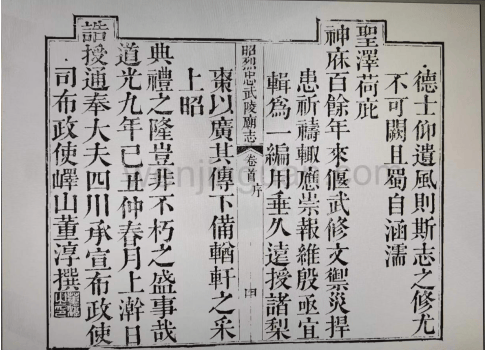 德士仰遺風則斯志之修尤
不可闕且蜀自涵濡
聖澤荷庇
神庥百餘年來偃武修文禦災捍
患祈禱輙應祟報維殷亟宜
輯為一編用垂久遠授諸梨
棗以廣其傳下備輶軒之采
上昭
典禮之隆豈非不朽之盛事哉
道光九年己丑仲春月上澣日
誥授通奉大夫四川承宣布政使
司布政使嶧山董淳撰
昭烈忠武陵廟志
卷首
序